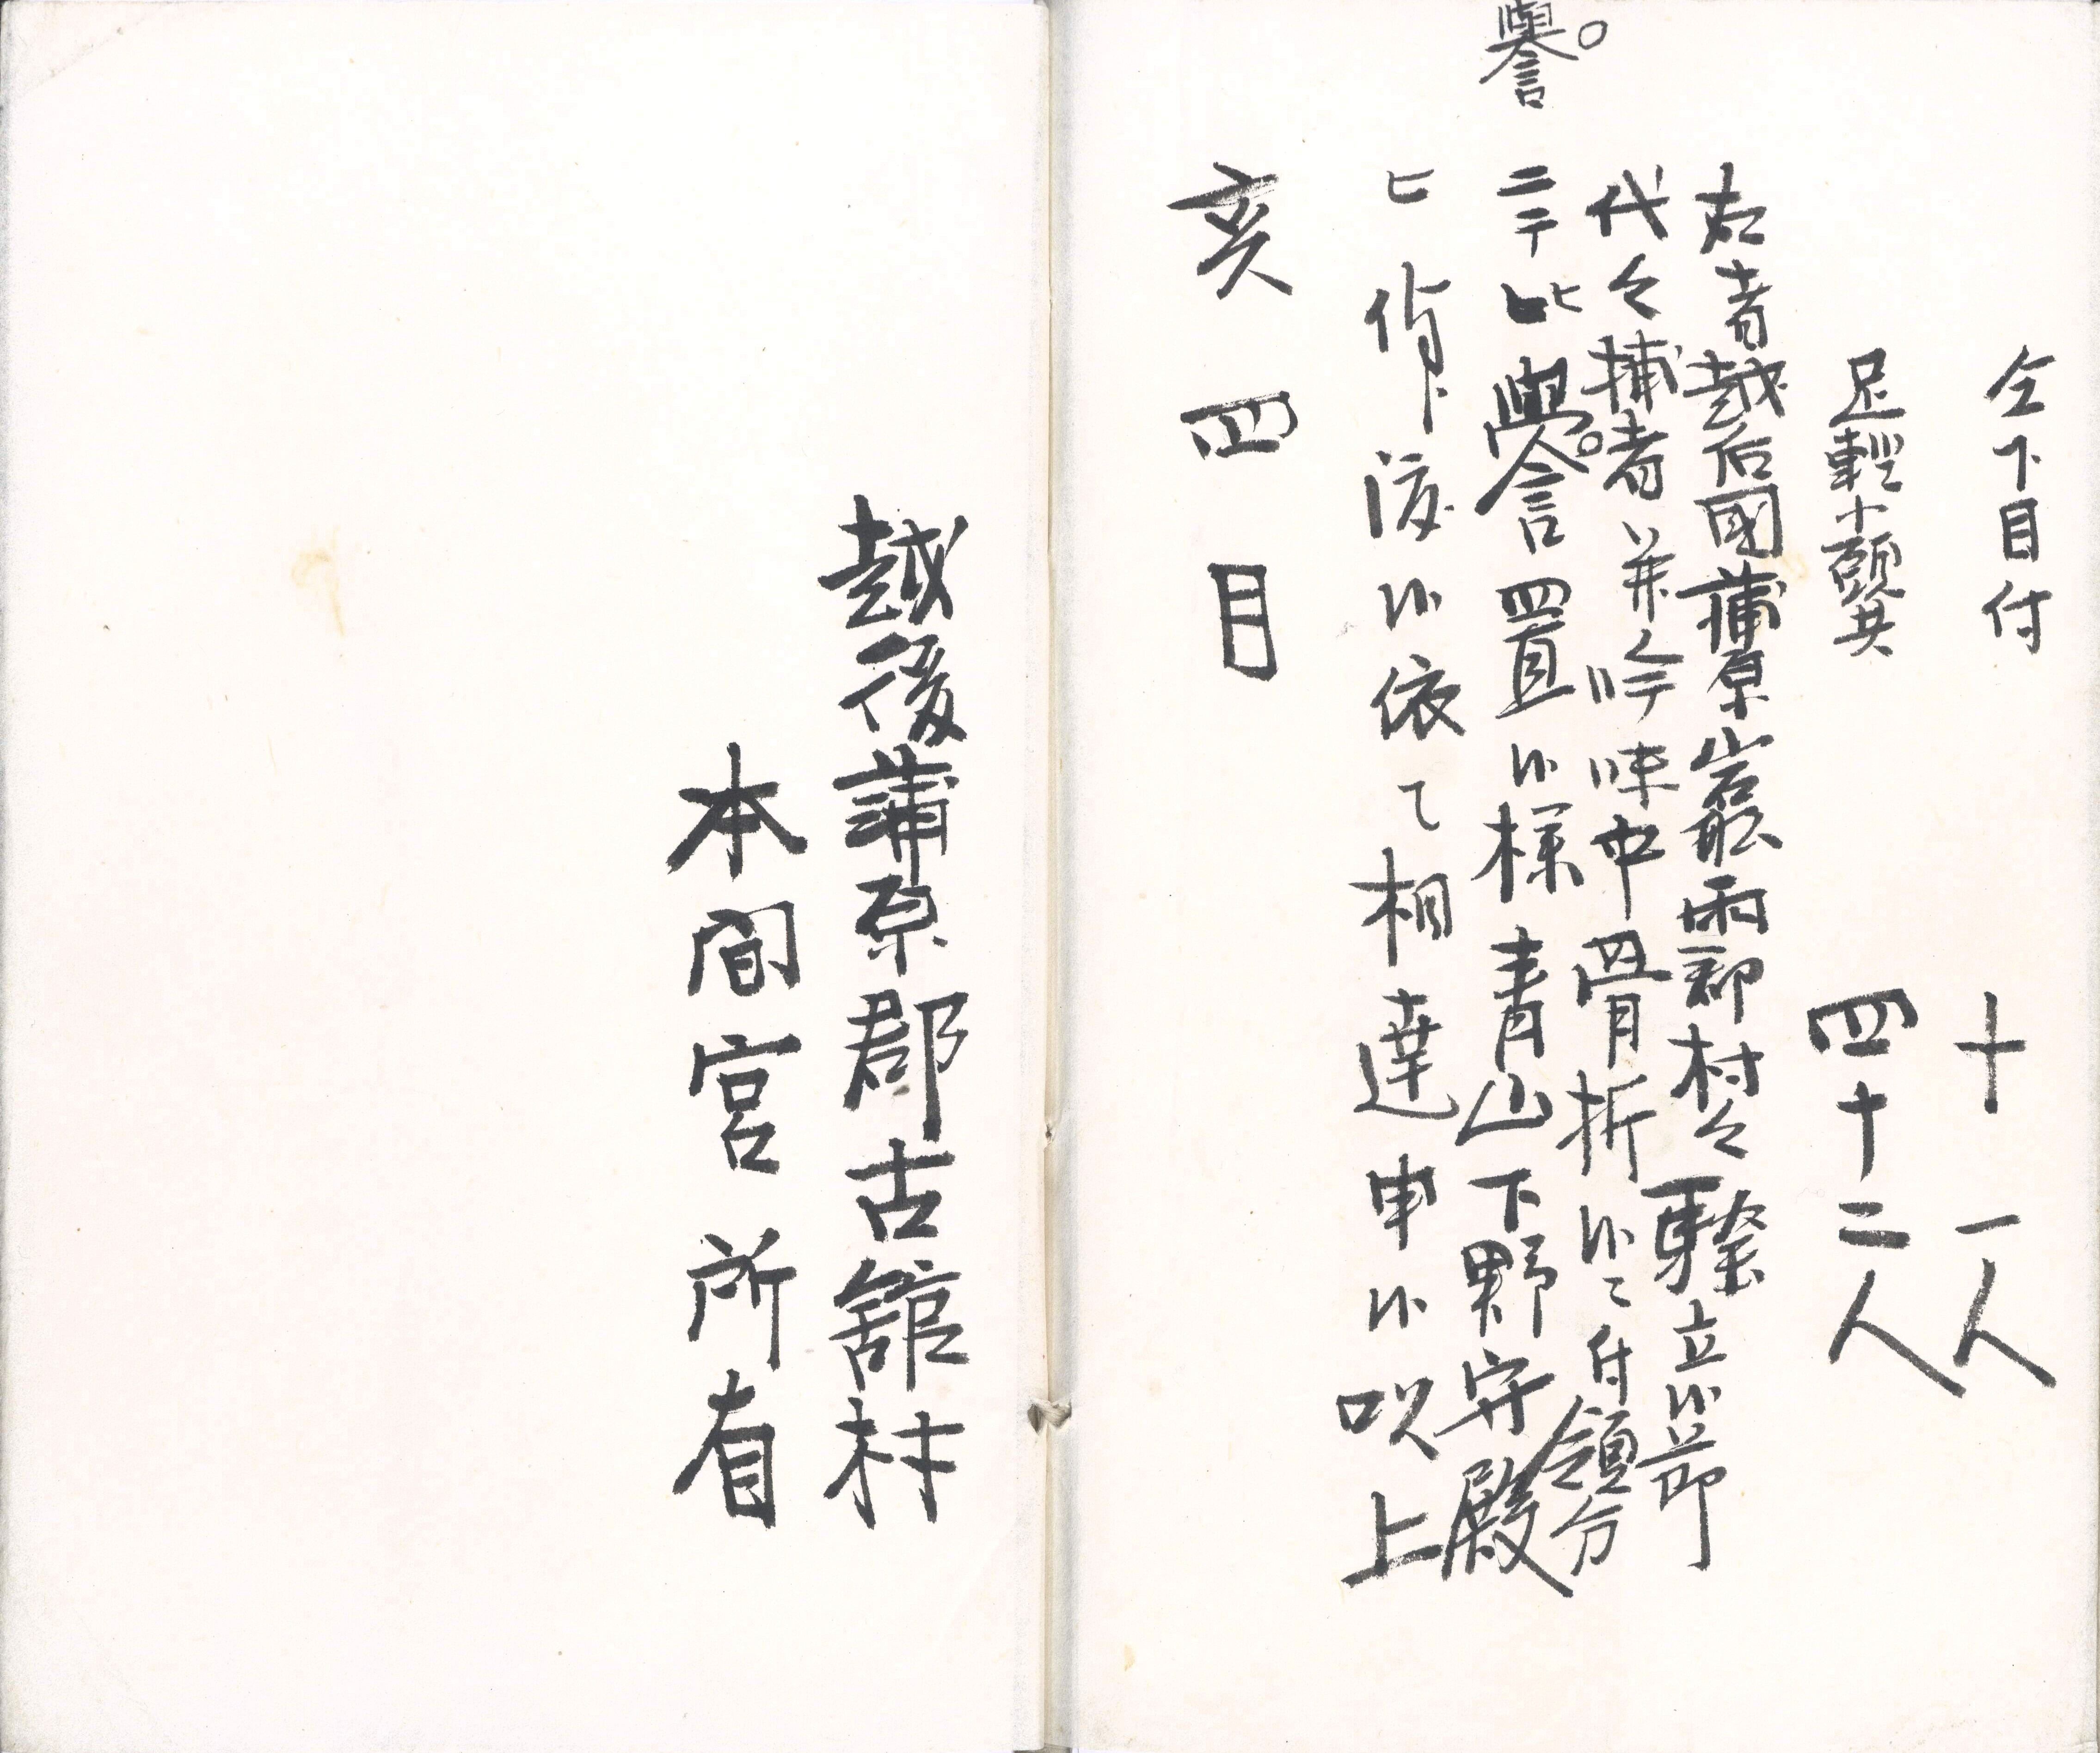 仝下目付 十一人
足輕小頭共 四十二人
右者越后國蒲原岩船両郡村々騒立候節
代々捕者并吟味中骨折候ニ付領分
譽
ニ而比譽置候様青山下野守殿
被仰渡候依て相達申候以上
亥四月
越後蒲原郡古舘村
本間宮所有